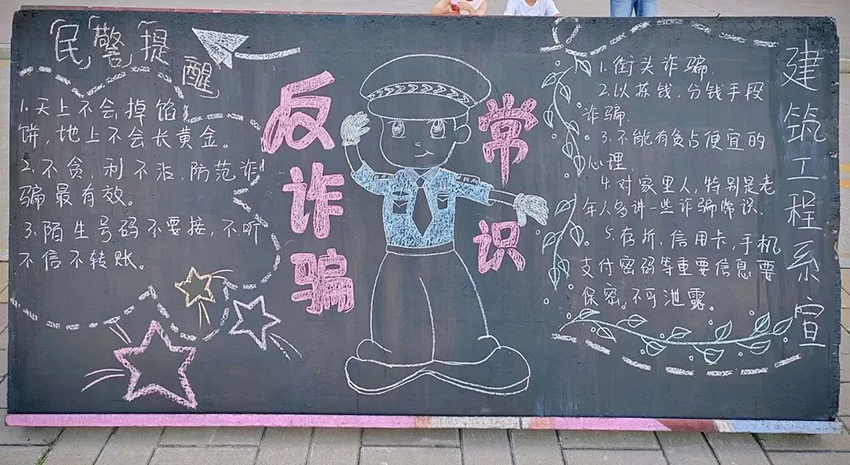 民警提醒
1.天上不会掉馅
饼,地上不会长黄金。
2.不贪,利不沾,防范诈
骗最有效。
3.陌生号码不要接,不听
不信不转账。
反诈骗
常识
1.街头诈骗.
2.以拣钱,分钱手段
诈骗.
3.不能有贪占便宜的
心理.
4.对家里人,特别是老
年人多讲一些诈骗常识.
5.存折、信用卡,手机
支付密码等重要信息要
保密。不可泄露.
建筑工程系宣